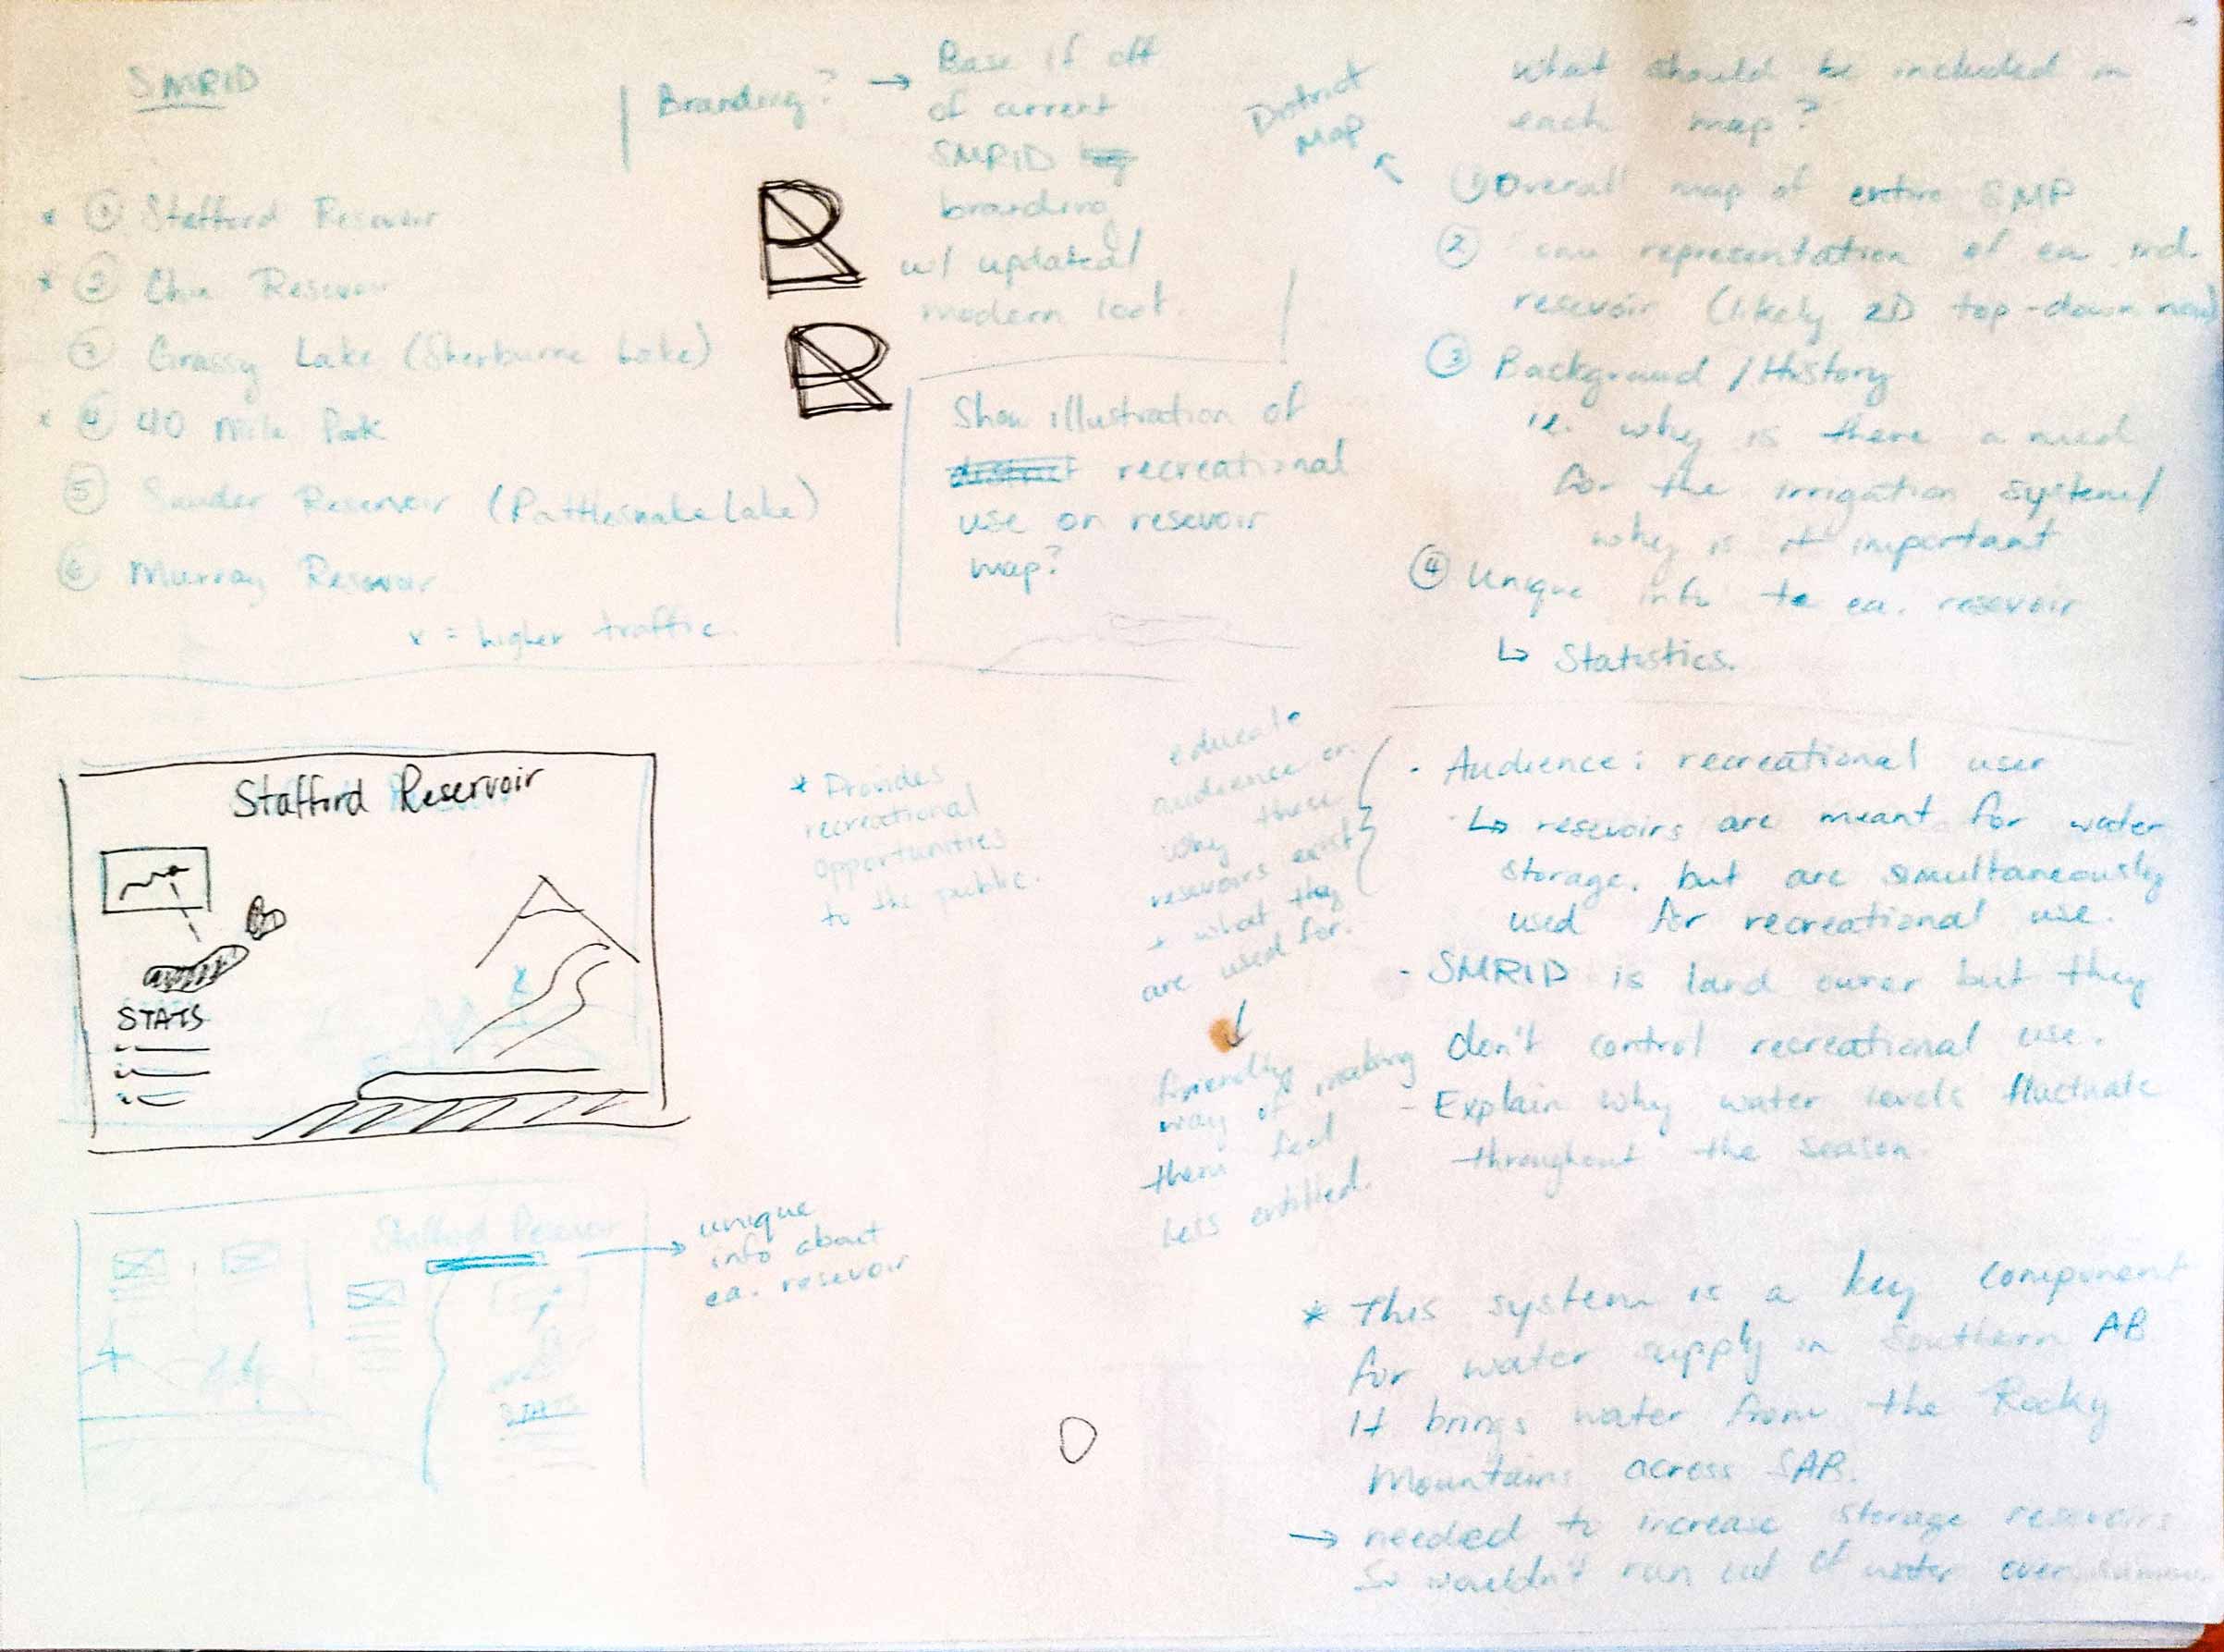 SMRID
* ① Stafford Resevoir
* ② Chin Resevoir
③ Grassy Lake (Sherburne Lake)
* ④ 40 Mile Park
⑤ Sauder Reservoir (Rattlesnake Lake)
⑥ Murray Resevoir
x = higher traffic.
Branding? → Base if off
of current
SMRID
branding
w/ updated/
modern look.
Show illustration of
district recreational
use on resevoir
map?
District
Map
What should be included on
each map?
① Overall map of entire SMP
② representation of ea. ind.
resevoir (likely 2D top-down view)
③ Background / History
ie. why is there a need
for the irrigation system/
why is it important
④ Unique info to ea. resevoir
↳ Statistics.
Stafford Reservoir
STATS
* Provides
recreational
opportunities
to the public.
educate
audience on
why these
resevoirs exist
+ what they
are used for.
↓
friendly
way of making
them feel
less entitled.
- Audience: recreational user
↳ resevoirs are meant for water
storage, but are simultaneously
used for recreational use.
- SMRID is land owner but they
don't control recreational use.
- Explain why water levels fluctuate
throughout the season.
Stafford Resevoir
STATS
→ unique
info about
ea. resevoir
* This system is a key component
for water supply in Southern AB
It brings water from the Rocky
Mountains across SAB.
→ needed to increase storage resevoirs
so wouldn't run out of water over